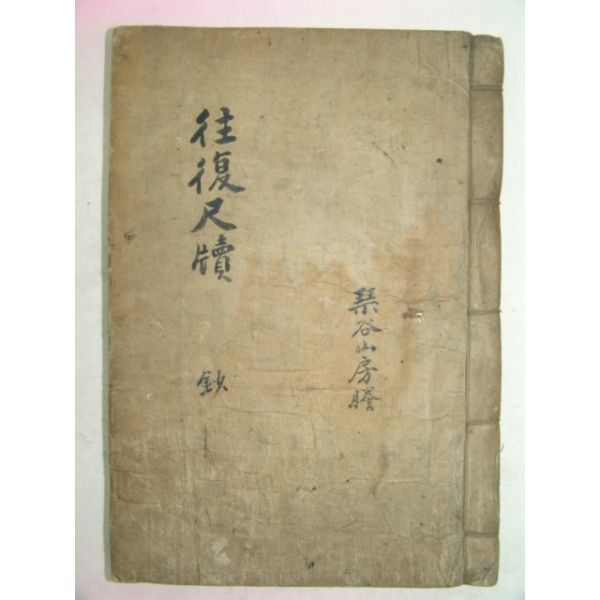 往復尺牘
鈔
琹谷山房謄